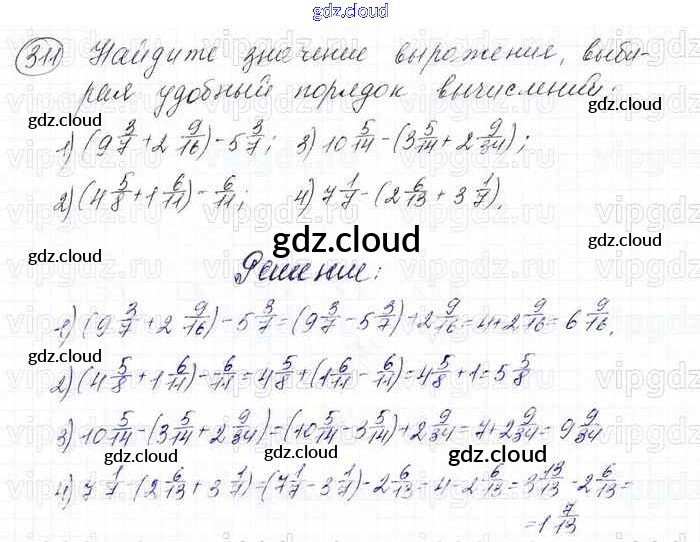 gdz.cloud
311 Найдите значение выражения, выби-
рая удобный порядок вычислений:
gdz.cloud gdz.cloud gdz.cloud
1) (9 3/7 + 2 9/16) - 5 3/7; 3) 10 5/14 - (3 5/14 + 2 9/34);
2) (4 5/8 + 1 6/11) - 6/11; 4) 7 1/7 - (2 6/13 + 3 1/7).
gdz.cloud gdz.cloud gdz.cloud
Решение:
1) (9 3/7 + 2 9/16) - 5 3/7 = (9 3/7 - 5 3/7) + 2 9/16 = 4 + 2 9/16 = 6 9/16.
gdz.cloud gdz.cloud gdz.cloud
2) (4 5/8 + 1 6/11) - 6/11 = 4 5/8 + (1 6/11 - 6/11) = 4 5/8 + 1 = 5 5/8
3) 10 5/14 - (3 5/14 + 2 9/34) = (10 5/14 - 3 5/14) + 2 9/34 = 7 + 2 9/34 = 9 9/34
gdz.cloud gdz.cloud gdz.cloud
4) 7 1/7 - (2 6/13 + 3 1/7) = (7 1/7 - 3 1/7) - 2 6/13 = 4 - 2 6/13 = 3 13/13 - 2 6/13 =
= 1 7/13
gdz.cloud